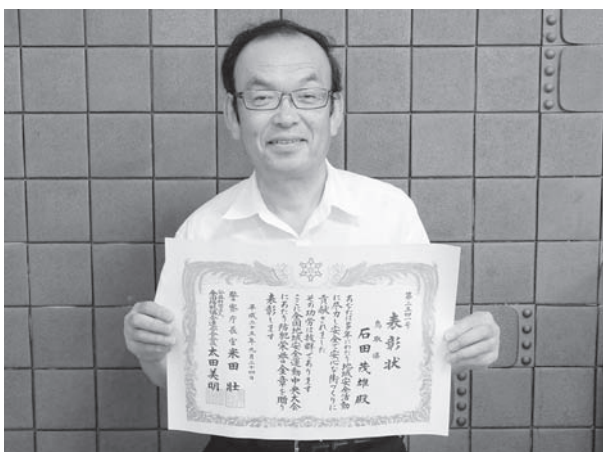 表彰状
鳥取県
石田茂雄殿
あなたは多年にわたり地域安全活動
に尽力し安全で安心な街づくりに
貢献されました
その功労は抜群であります
ここに全国地域安全運動中央大会
にあたり防犯栄誉金章を贈り
表彰します
警察庁長官 米田 壮
太田美明